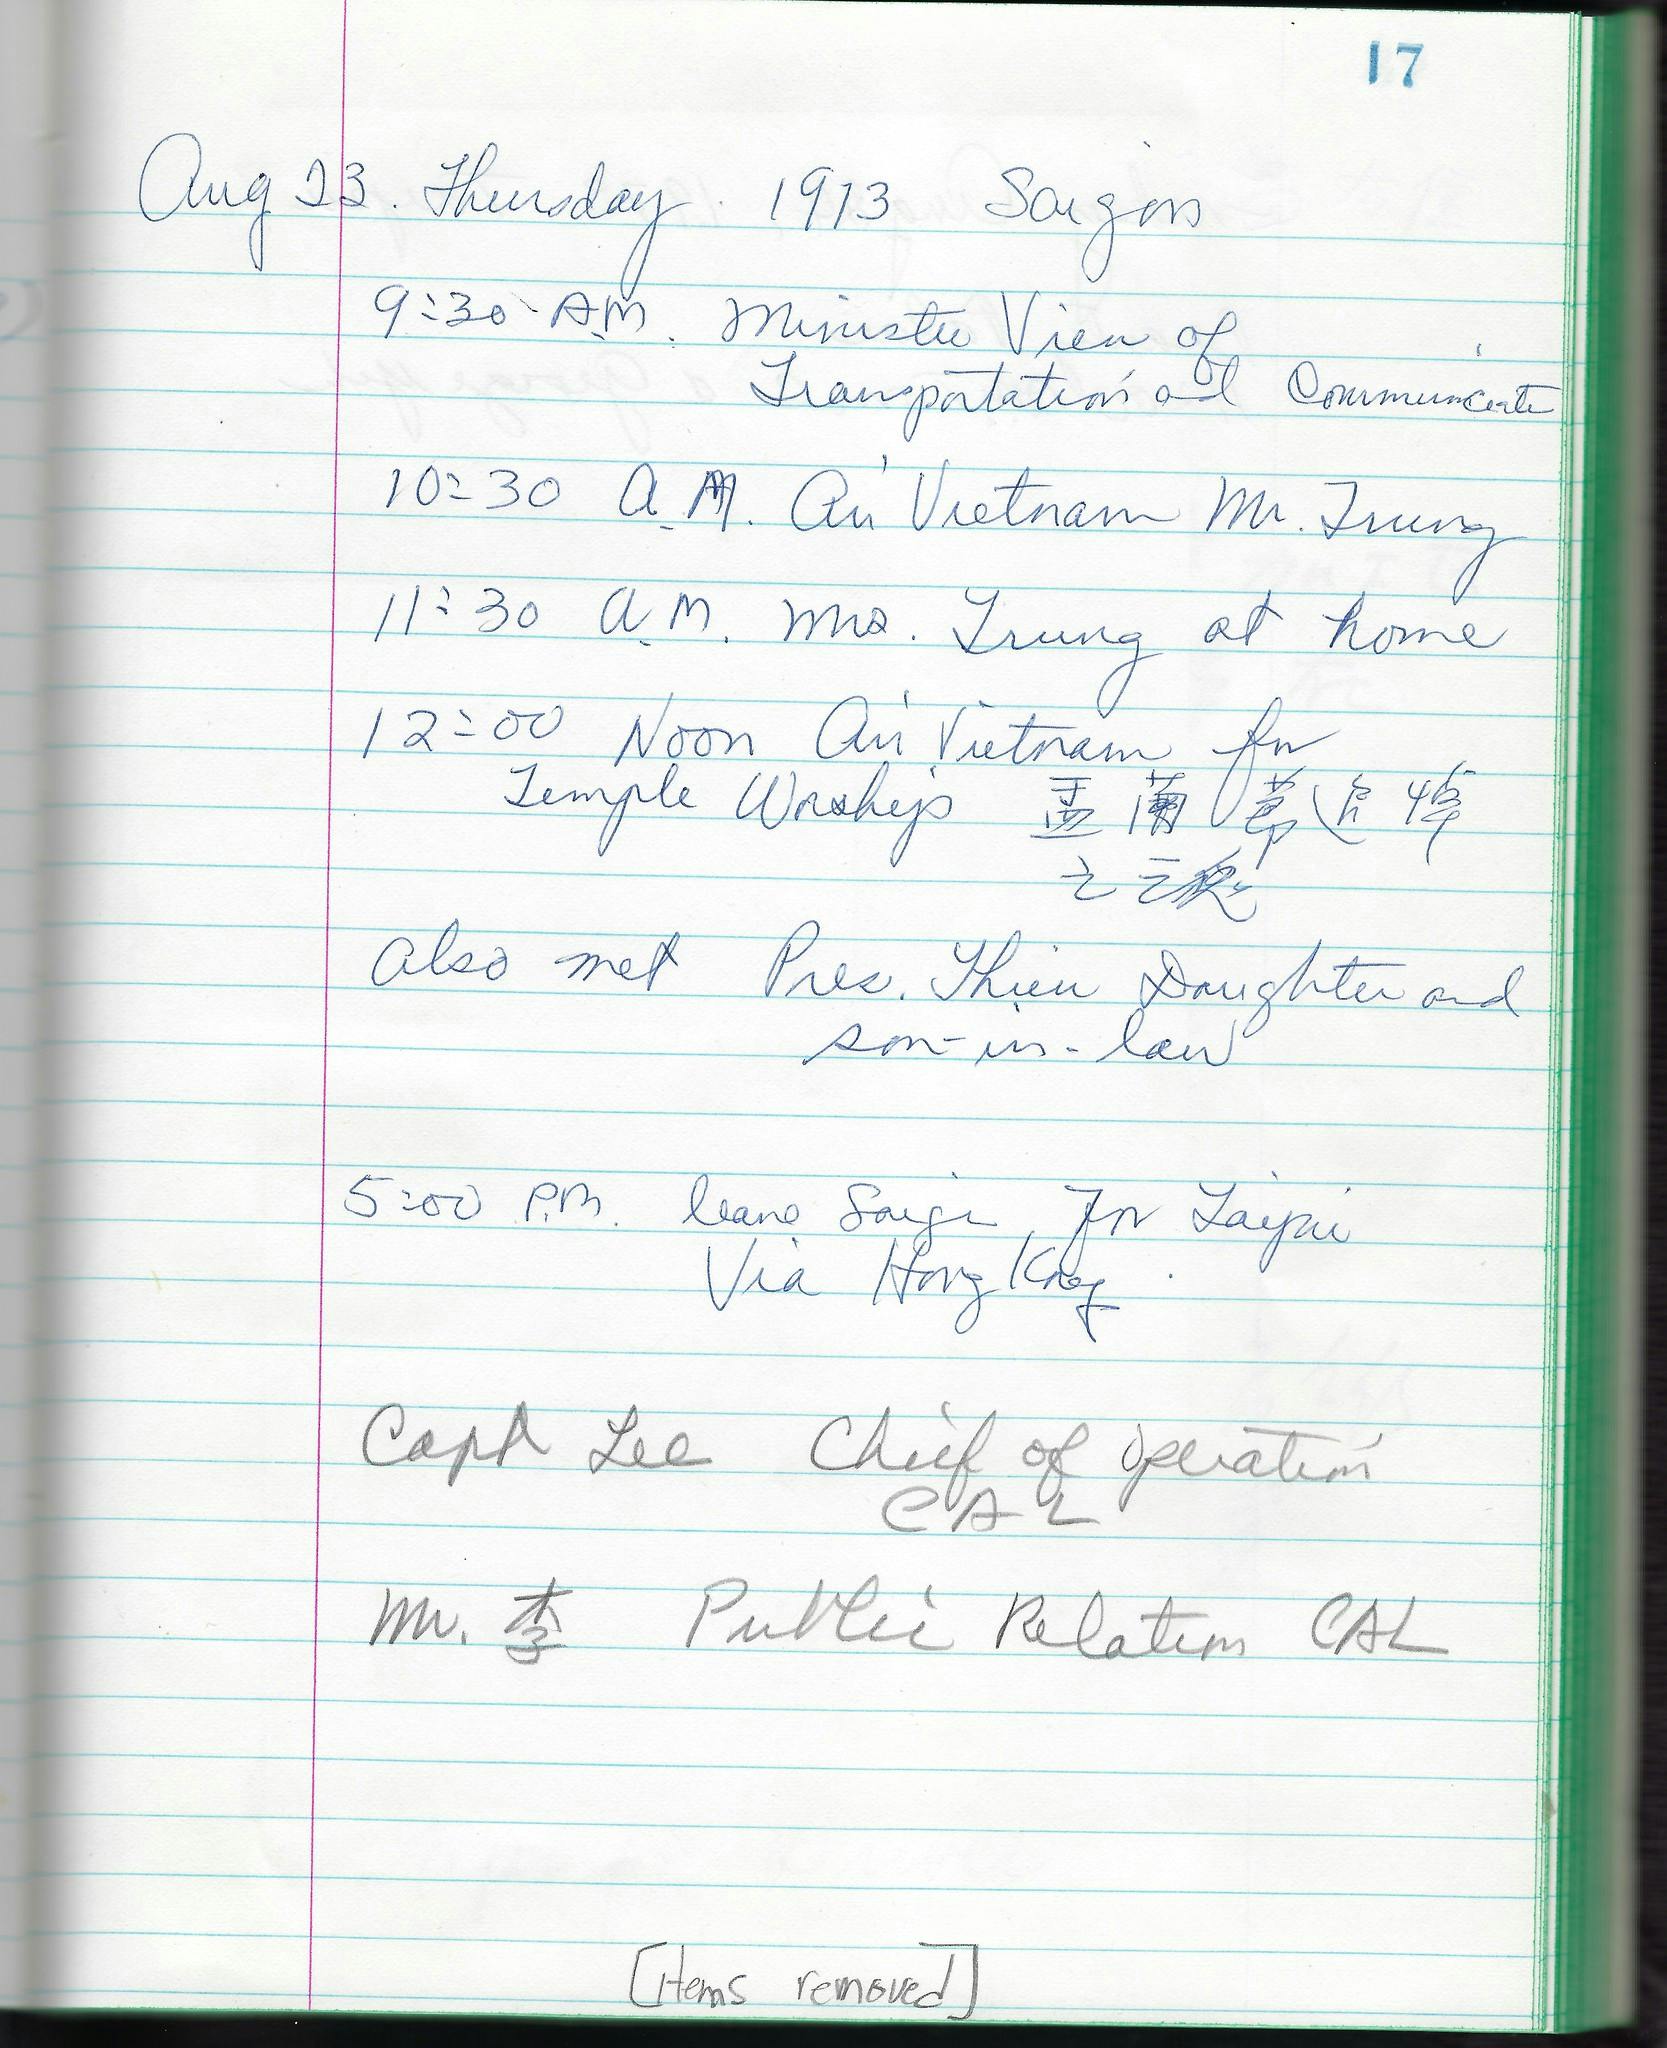 17
Aug 23. Thursday. 1973 Saigon
9:30 A.M. Minister Vien of
Transportation and Communicate
10:30 A.M. Air Vietnam Mr. Trung
11:30 A.M. Mrs. Trung at home
12:00 Noon Air Vietnam for
Temple Worship 盂蘭節追悼
also met Pres. Thieu Daughter and
son-in-law
5:00 P.M. leave Saigon for Taipei
Via Hong Kong.
Capt Lee Chief of Operation
CAL
Mr. 李 Public Relation CAL
[items removed]